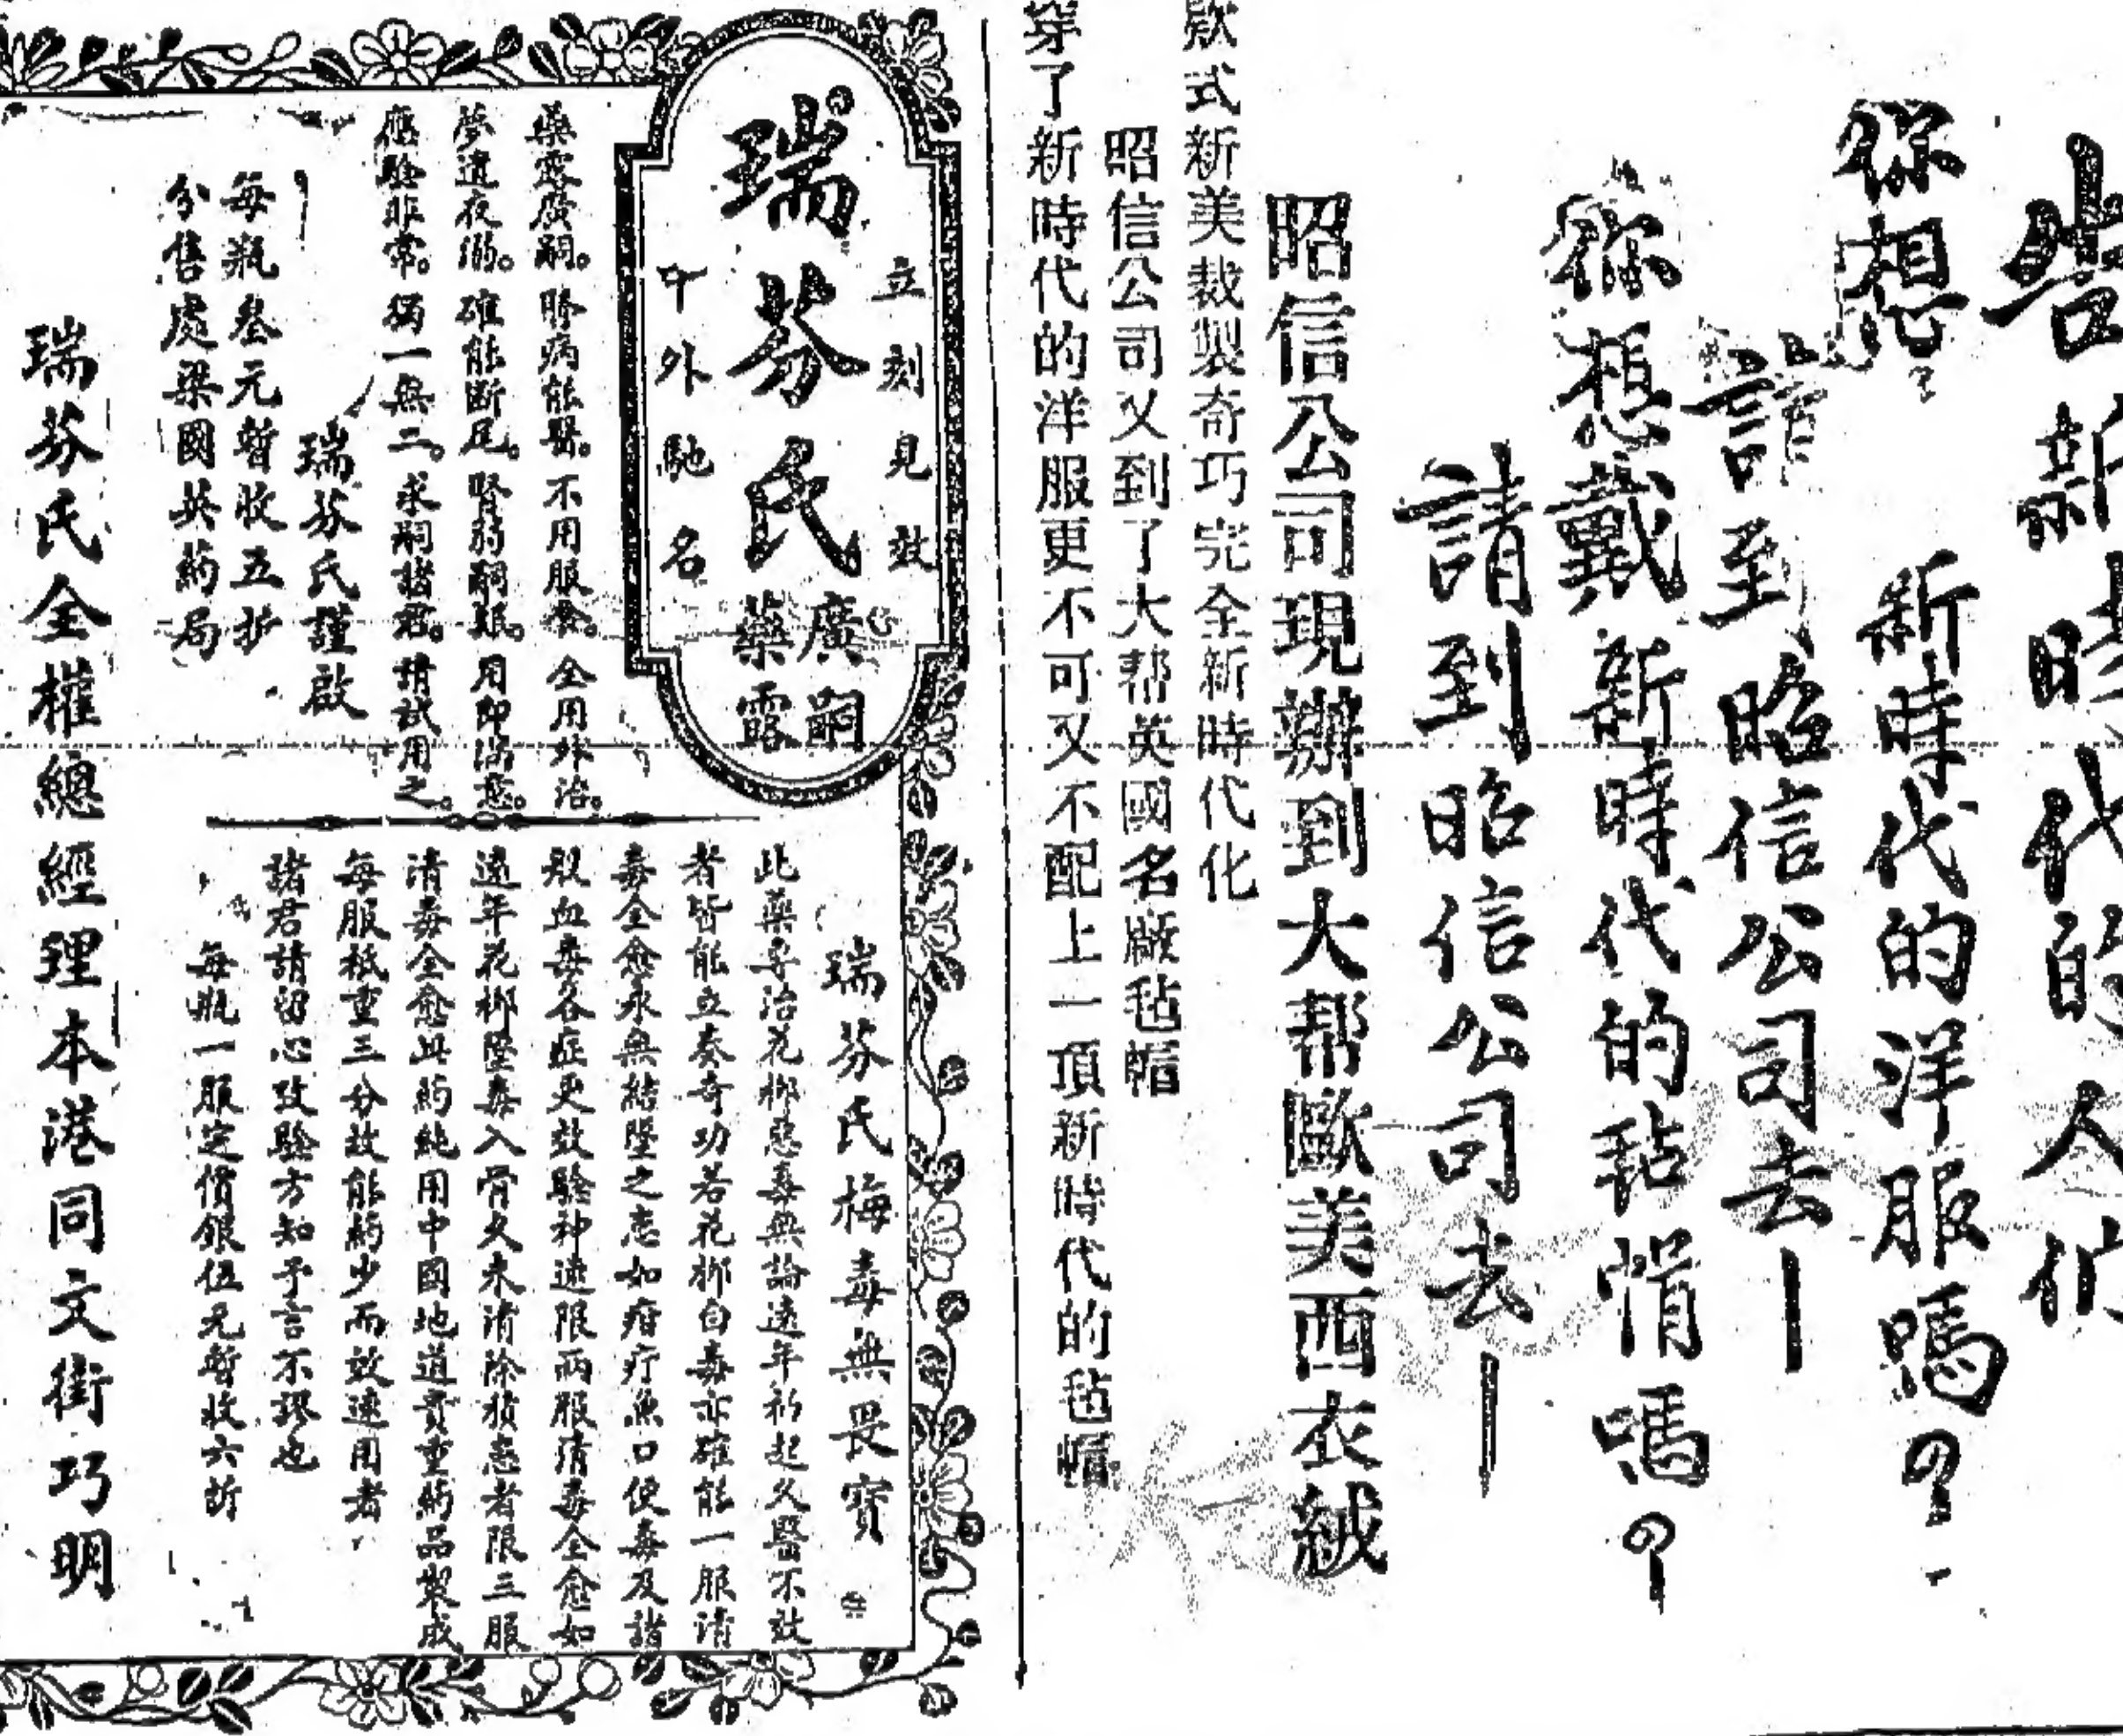 告新時代的人們
你想
新時代的洋服嗎?
請至昭信公司去!
你想戴新時代的毡帽嗎?
請到昭信公司去!
昭信公司現辦到大帮歐美西衣絨
欵式新美裁製奇巧完全新時代化
昭信公司又到了大帮英國名廠毡帽
穿了新時代的洋服更不可又不配上一項新時代的毡帽
立刻見效
瑞芬氏
廣嗣
藥露
中外馳名
藥露廣嗣。腎病能醫。不用服食。全用外治。
夢遺夜溺。確能斷尾。腎弱嗣艱。用即滿意。
應驗非常。獨一無二。求嗣諸君。請試用之。
瑞芬氏謹啟
每瓶叁元暫收五折
分售處梁國英葯局
瑞芬氏梅毒無畏寶
此藥專治花柳惡毒無論遠年初起久醫不效
者皆能立奏奇功若花柳白毒亦確能一服清
毒全愈永無結墜之患如疳疔魚口便毒及諸
般血毒各症更效驗神速限兩服清毒全愈如
遠年花柳墜毒入骨久未清除積患者限三服
清毒全愈此葯純用中國地道貴重葯品製成
每服祇重三分故能葯少而效速用者
諸君請留心攷驗方知予言不謬也
每瓶一服定價銀伍元暫收六折
瑞芬氏全權總經理本港同文街巧明